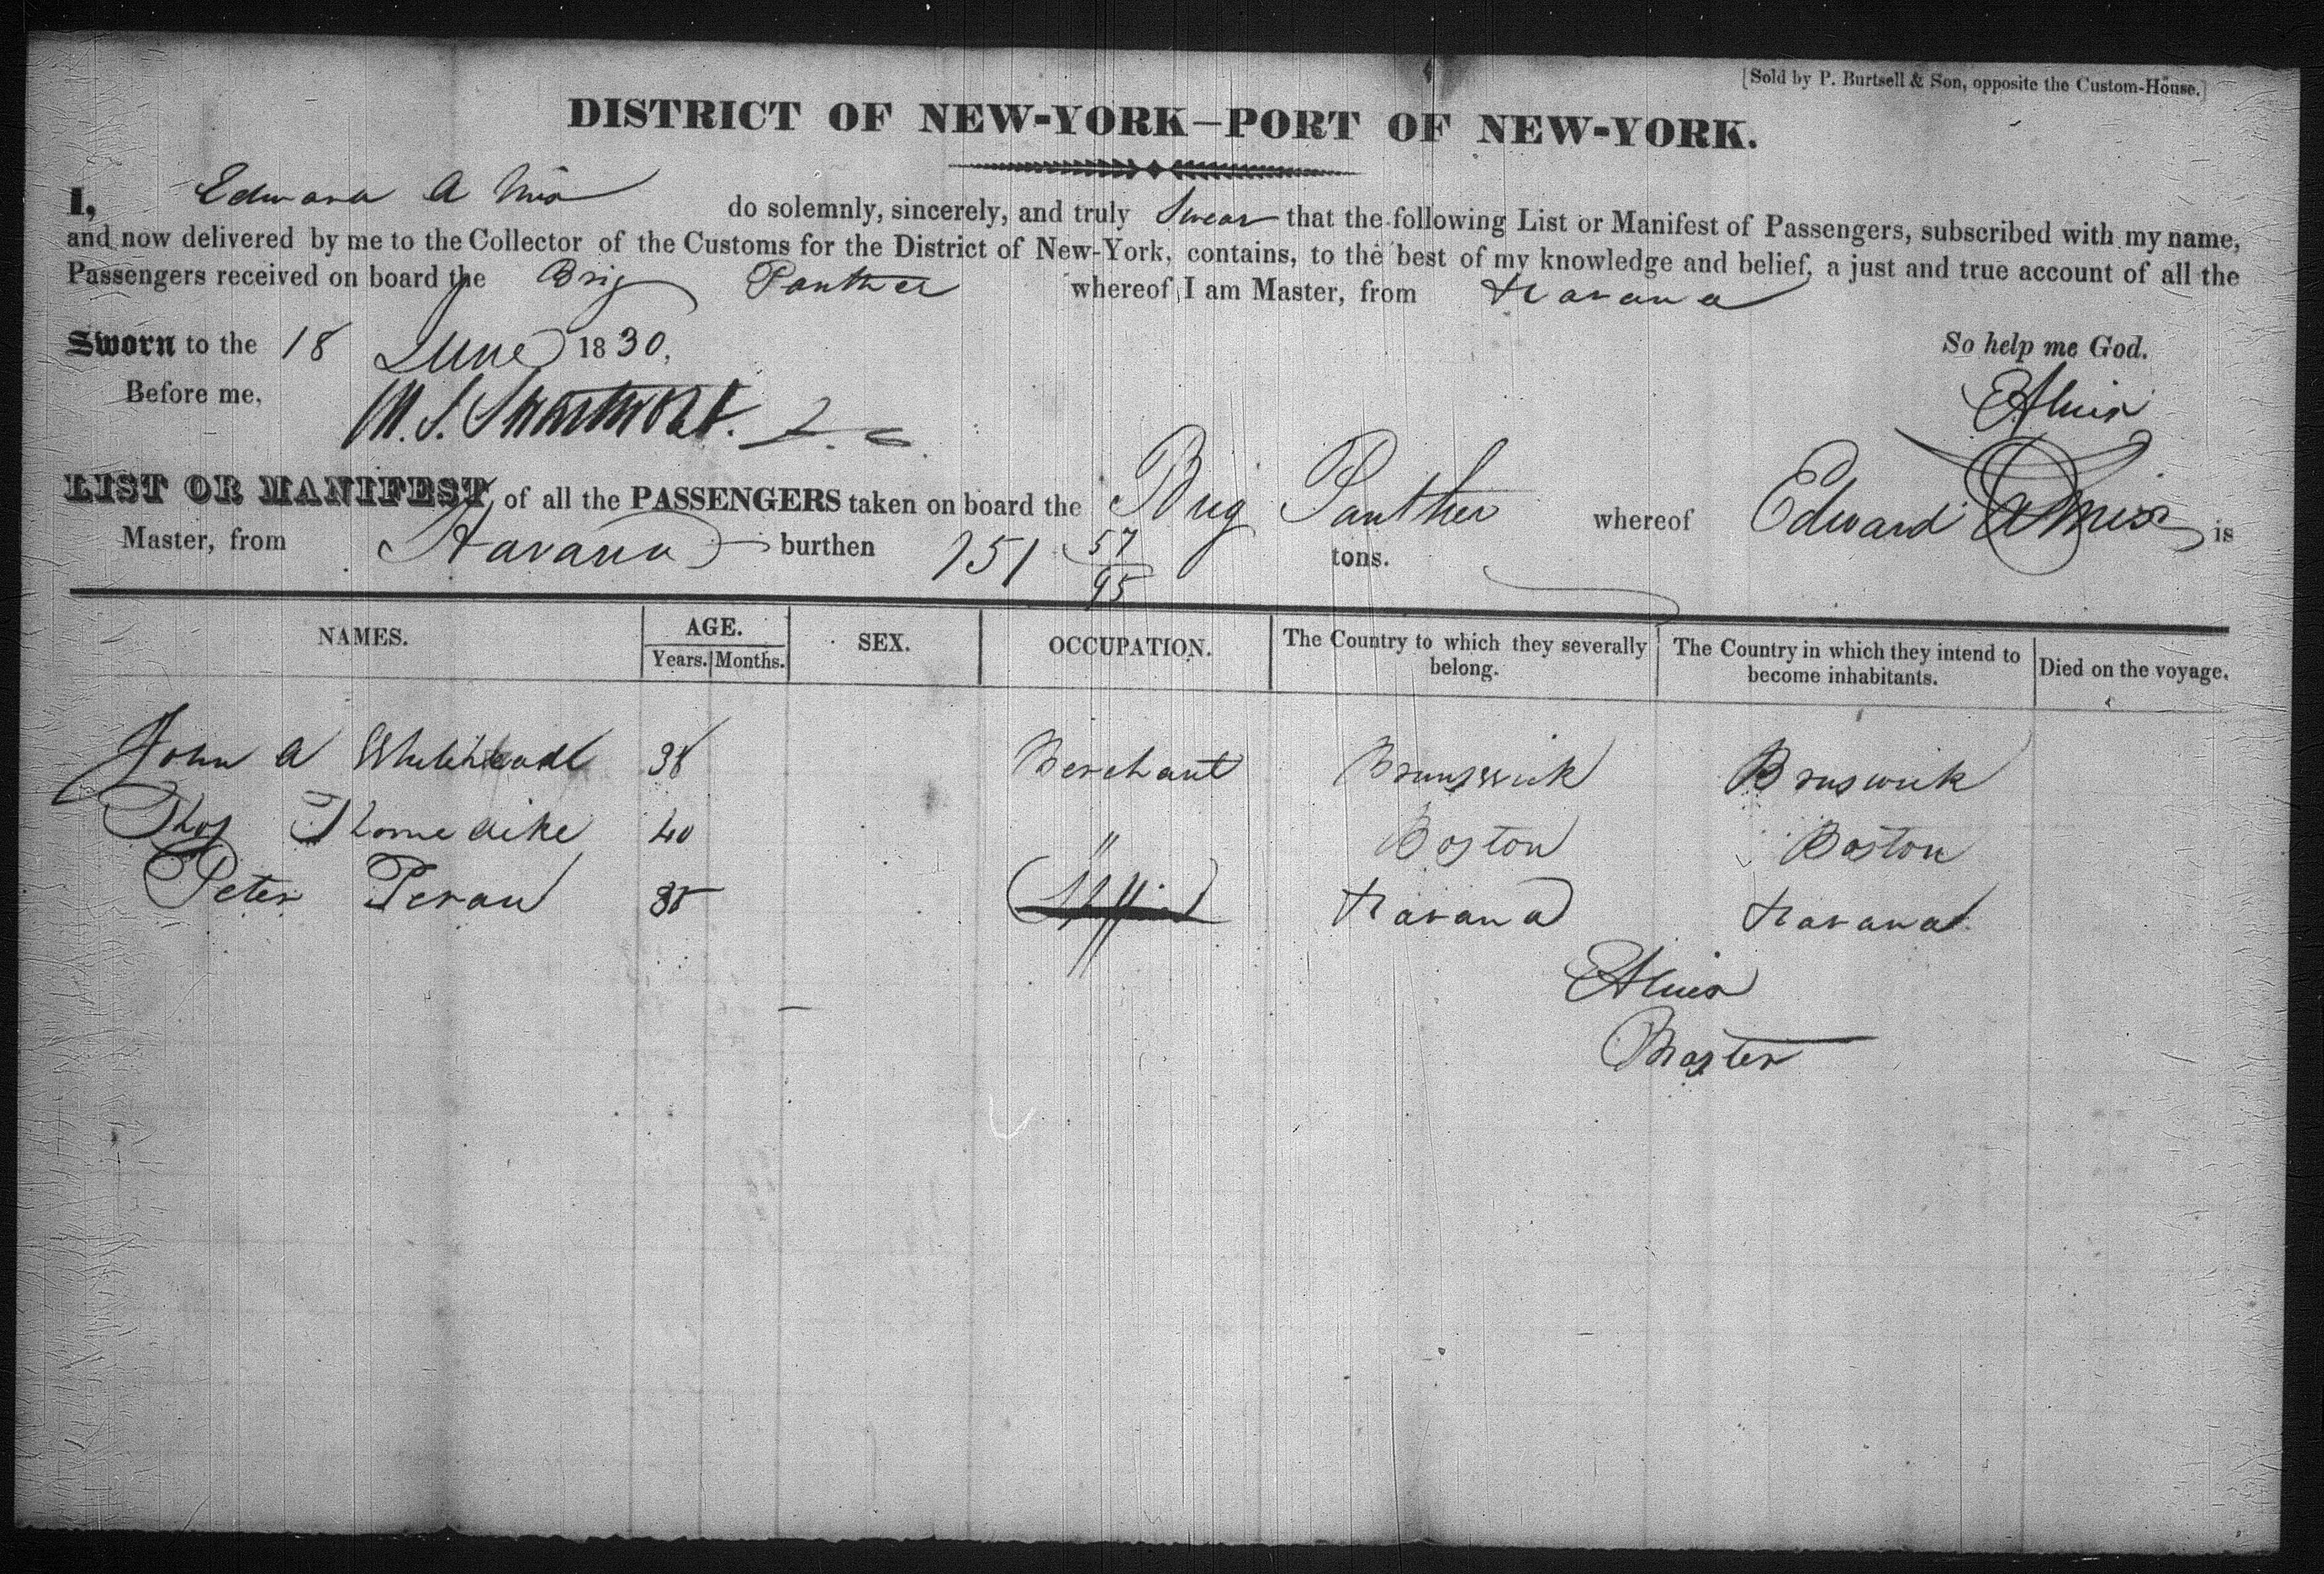 [Sold by P. Burtsell & Son, opposite the Custom-House.]
DISTRICT OF NEW-YORK—PORT OF NEW-YORK.
I, Edward A Mix do solemnly, sincerely, and truly Swear that the following List or Manifest of Passengers, subscribed with my name,
and now delivered by me to the Collector of the Customs for the District of New-York, contains, to the best of my knowledge and belief, a just and true account of all the
Passengers received on board the Brig Panther whereof I am Master, from Havana
Sworn to the 18 June 1830, So help me God.
Before me, M. S. Swartwout. EAMix
LIST OR MANIFEST of all the PASSENGERS taken on board the Brig Panther whereof Edward A Mix is
Master, from Havana burthen 151 57/95 tons.
NAMES. AGE. Years. Months. SEX. OCCUPATION. The Country to which they severally belong. The Country in which they intend to become inhabitants. Died on the voyage.
John A Whitehead 38 Merchant Brunswick Bruswick
Thos Thorne dike 40 " Boston Boston
Peter Peran 38 Havana Havana
EAMix
Master